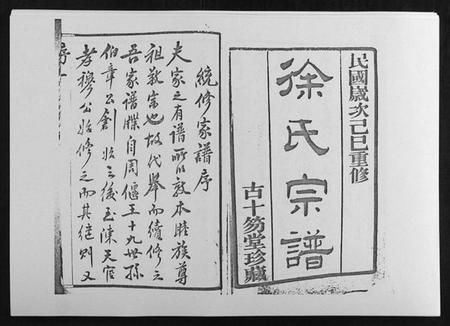 民國歲次己巳重修
徐氏宗譜
古十笏堂珍藏
統修家譜序
夫家之有譜所以敦本睦族尊
祖敬宗也故代舉而續修之
吾家譜牒自周偃王十九世孫
伯章公創始之後至陳天官
孝穆公始修之而其繼則又